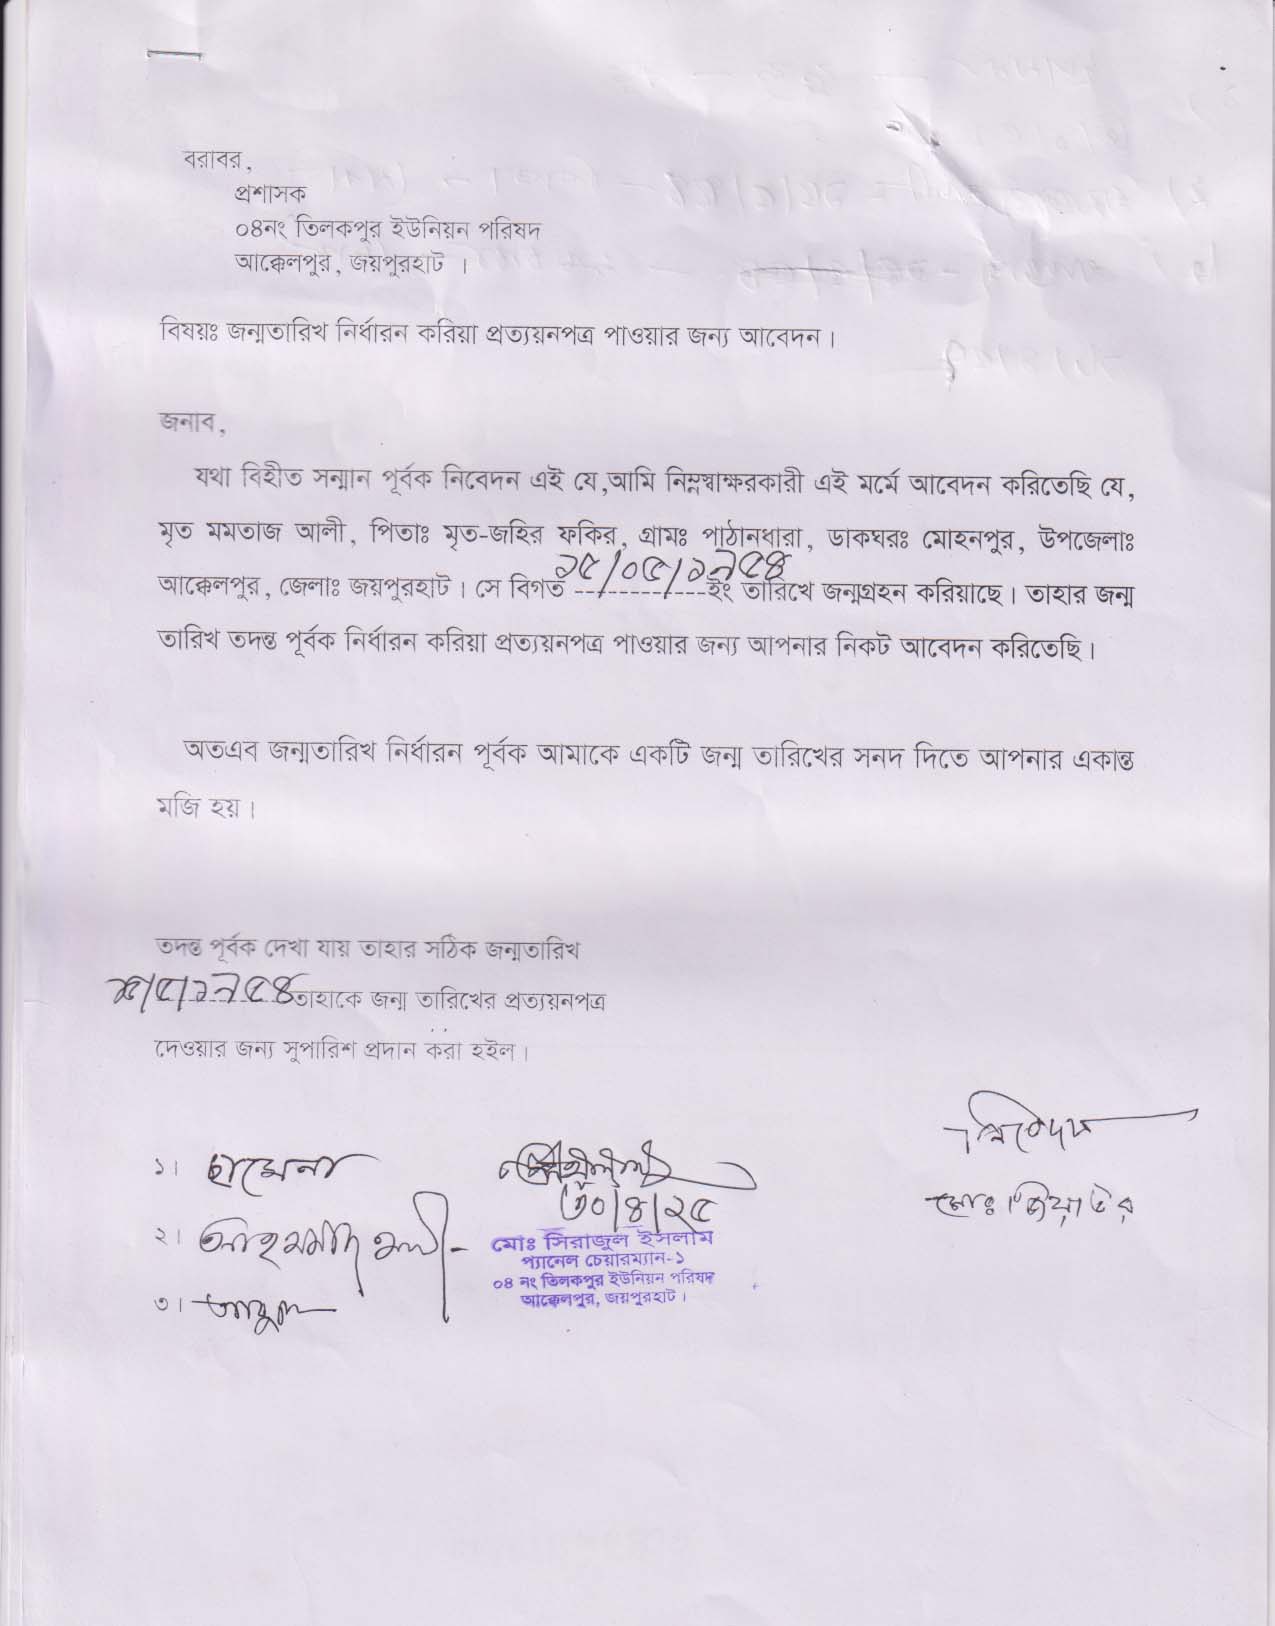 বরাবর,
প্রশাসক
০৪নং তিলকপুর ইউনিয়ন পরিষদ
আক্কেলপুর, জয়পুরহাট ।
বিষয়ঃ জন্মতারিখ নির্ধারন করিয়া প্রত্যয়নপত্র পাওয়ার জন্য আবেদন ।
জনাব,
যথা বিহীত সন্মান পূর্বক নিবেদন এই যে,আমি নিম্নস্বাক্ষরকারী এই মর্মে আবেদন করিতেছি যে,
মৃত মমতাজ আলী, পিতাঃ মৃত-জহির ফকির, গ্রামঃ পাঠানধারা, ডাকঘরঃ মোহনপুর, উপজেলাঃ
আক্কেলপুর, জেলাঃ জয়পুরহাট । সে বিগত ১৫/০৫/১৯৫৪ ইং তারিখে জন্মগ্রহন করিয়াছে । তাহার জন্ম
তারিখ তদন্ত পূর্বক নির্ধারন করিয়া প্রত্যয়নপত্র পাওয়ার জন্য আপনার নিকট আবেদন করিতেছি ।
অতএব জন্মতারিখ নির্ধারন পূর্বক আমাকে একটি জন্ম তারিখের সনদ দিতে আপনার একান্ত
মজি হয় ।
তদন্ত পূর্বক দেখা যায় তাহার সঠিক জন্মতারিখ
১৫/৫/১৯৫৪ তাহাকে জন্ম তারিখের প্রত্যয়নপত্র
দেওয়ার জন্য সুপারিশ প্রদান করা হইল ।
নিবেদক
১। ছামেনা
৩০/৪/২৫
মোঃ জিয়াউর
২।
মোঃ সিরাজুল ইসলাম
প্যানেল চেয়ারম্যান-১
০৪ নং তিলকপুর ইউনিয়ন পরিষদ
আক্কেলপুর, জয়পুরহাট ।
৩।